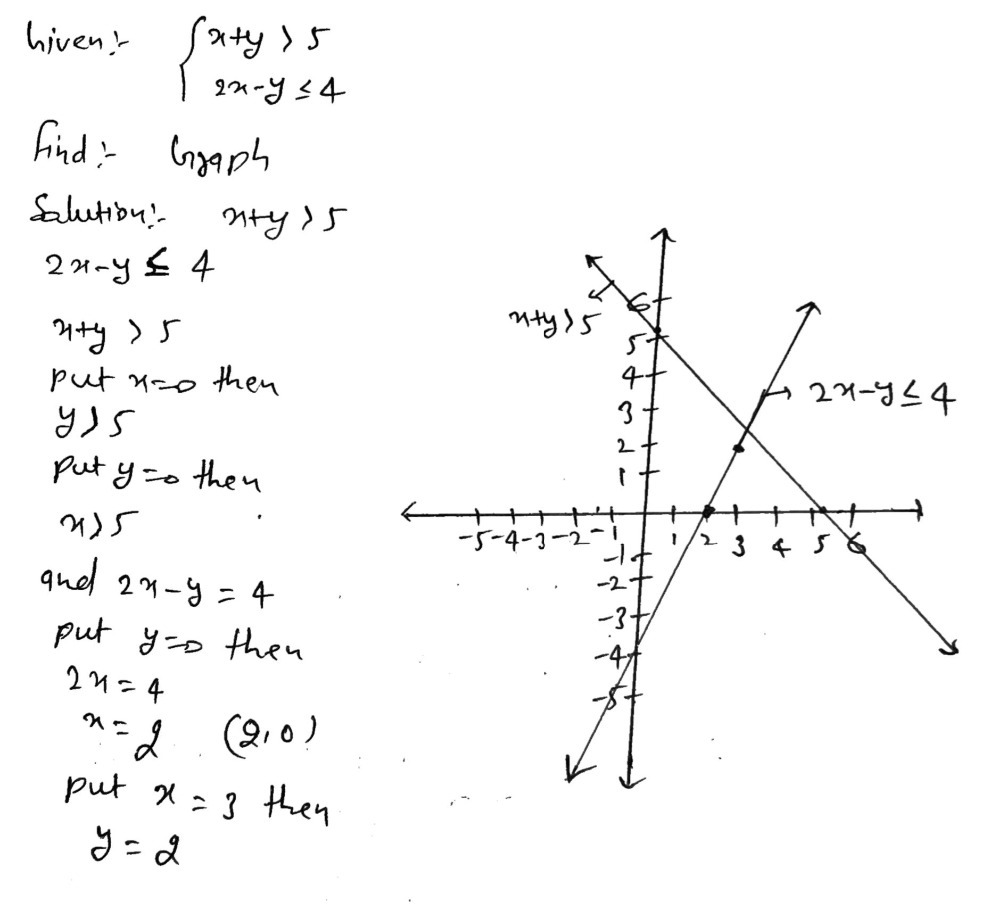 Given:- { x+y > 5
2x-y ≤ 4
find:- Graph
Solution:- x+y > 5
2x-y ≤ 4
x+y > 5
put x=0 then
y > 5
put y=0 then
x > 5
and 2x-y = 4
put y=0 then
2x = 4
x = 2 (2,0)
put x = 3 then
y = 2
x+y > 5
6
5
4
3
2
1
2x-y ≤ 4
-5 -4 -3 -2 -1 1 2 3 4 5 6
-1
-2
-3
-4
-5